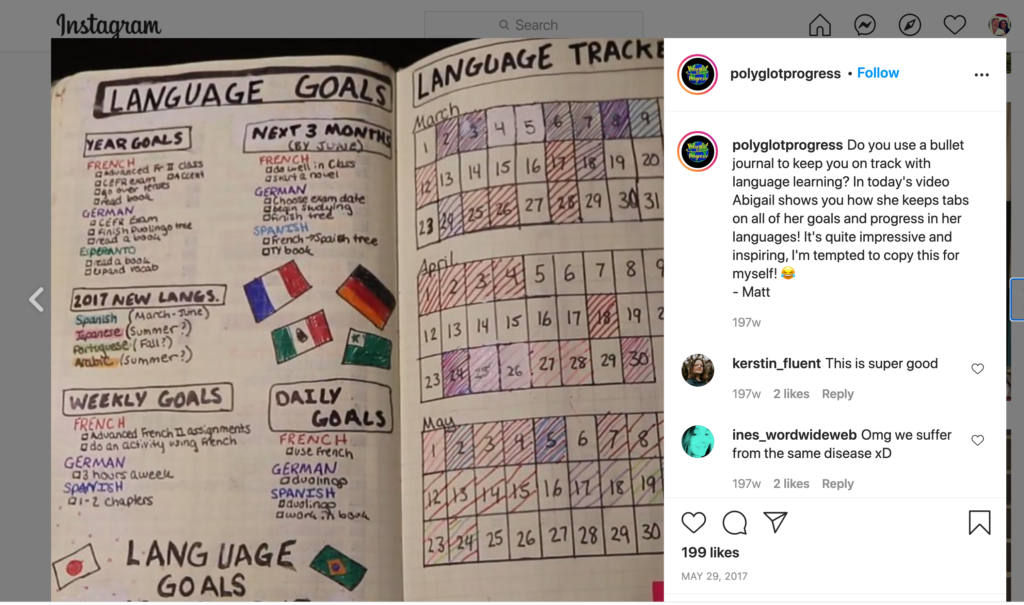 Instagram
Search
LANGUAGE GOALS
YEAR GOALS
FRENCH
Advanced Fr II class
CEFR exam Accent
go over tenses
read book
GERMAN
CEFR Exam
Finish Duolingo tree
read a book
ESPERANTO
read a book
expand vocab
NEXT 3 MONTHS
(BY JUNE)
FRENCH
do well in class
start a novel
GERMAN
Choose exam date
begin studying
finish tree
SPANISH
French → Spanish tree
TY book
2017 NEW LANGS.
Spanish (March-June)
Japanese (Summer?)
Portuguese (Fall?)
Arabic (Summer?)
WEEKLY GOALS
FRENCH
Advanced French II assignments
do an activity using French
GERMAN
3 hours a week
SPANISH
1-2 chapters
DAILY
GOALS
FRENCH
use French
GERMAN
duolingo
SPANISH
duolingo
work in book
LANGUAGE
GOALS
LANGUAGE TRACKE
March
1 2 3 4 5 6 7 8 9
12 13 14 15 16 17 18 19 20
23 24 25 26 27 28 29 30 31
April
1 2 3 4 5 6 7 8 9
12 13 14 15 16 17 18 19 2
23 24 25 26 27 28 29 30
May
1 2 3 4 5 6 7 8
12 13 14 15 16 17 18 19
23 24 25 26 27 28 29 30
polyglotprogress • Follow
polyglotprogress Do you use a bullet
journal to keep you on track with
language learning? In today's video
Abigail shows you how she keeps tabs
on all of her goals and progress in her
languages! It's quite impressive and
inspiring, I'm tempted to copy this for
myself! 😂
- Matt
197w
kerstin_fluent This is super good
197w 2 likes Reply
ines_wordwideweb Omg we suffer
from the same disease xD
197w 2 likes Reply
199 likes
MAY 29, 2017